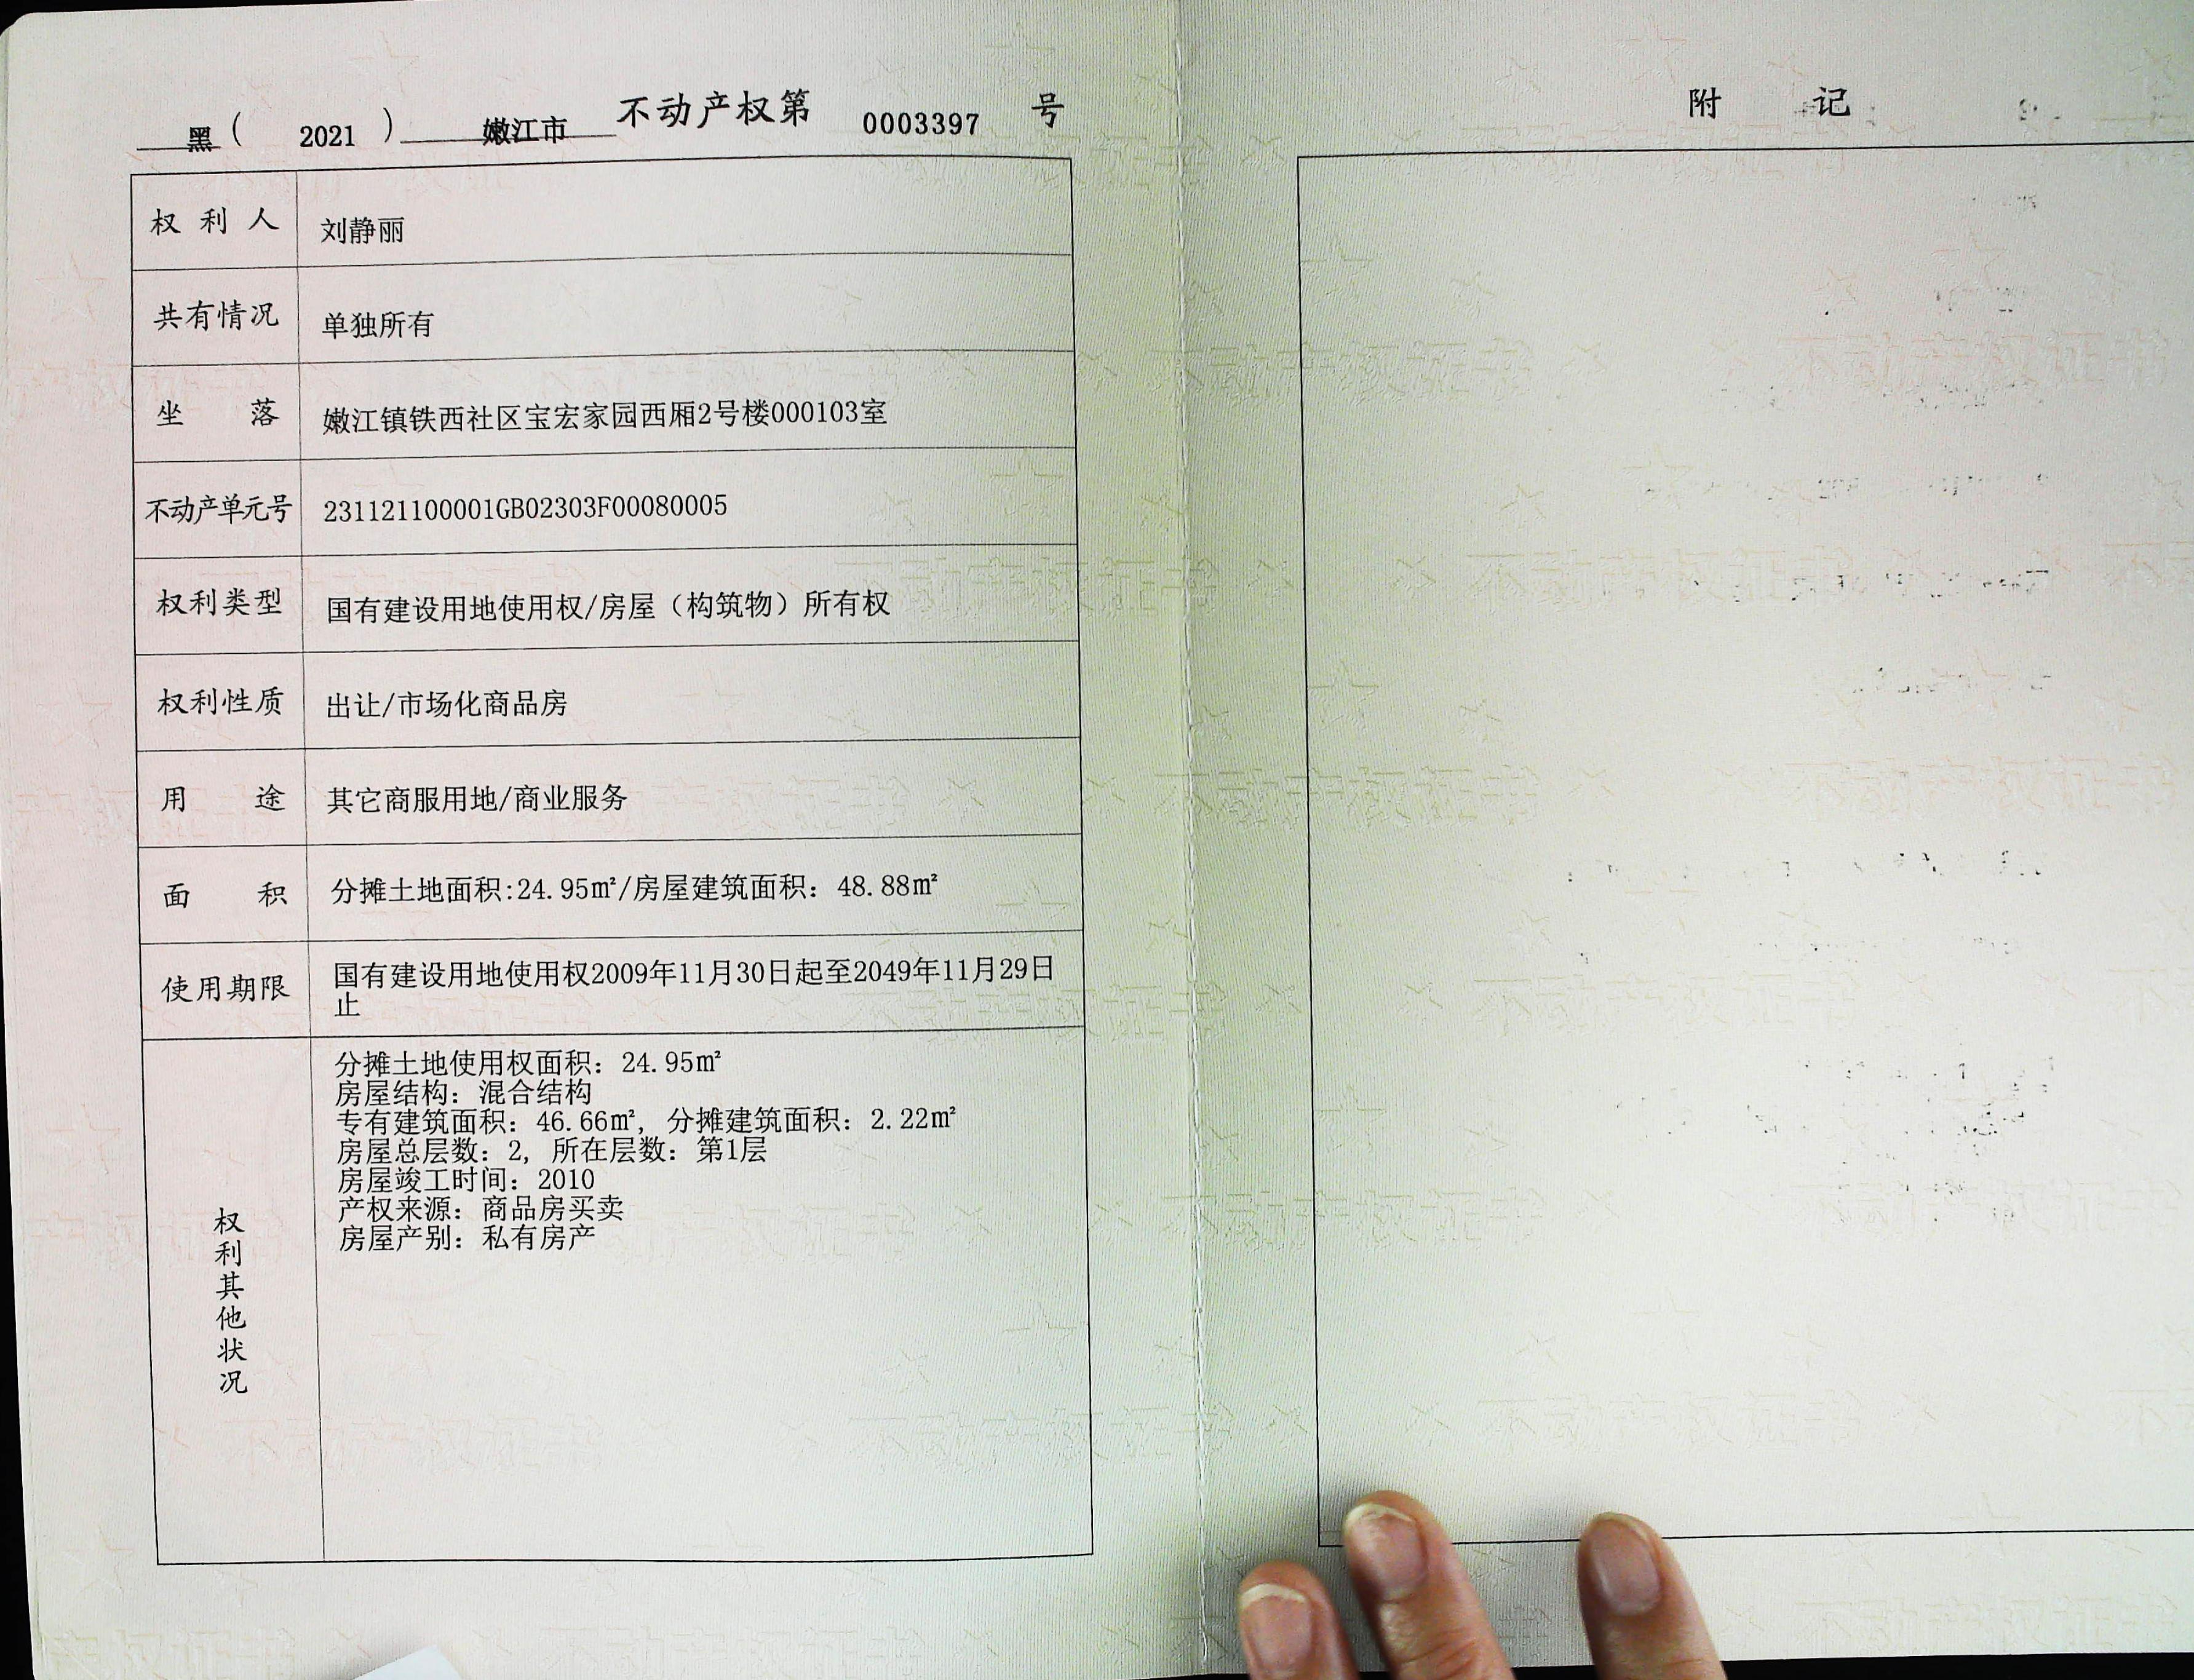 黑（ 2021 ） 嫩江市 不动产权第 0003397 号
权利人 刘静丽
共有情况 单独所有
坐落 嫩江镇铁西社区宝宏家园西厢2号楼000103室
不动产单元号 231121100001GB02303F00080005
权利类型 国有建设用地使用权/房屋（构筑物）所有权
权利性质 出让/市场化商品房
用途 其它商服用地/商业服务
面积 分摊土地面积:24.95㎡/房屋建筑面积：48.88㎡
使用期限 国有建设用地使用权2009年11月30日起至2049年11月29日
止
权利其他状况
分摊土地使用权面积：24.95㎡
房屋结构：混合结构
专有建筑面积：46.66㎡，分摊建筑面积：2.22㎡
房屋总层数：2，所在层数：第1层
房屋竣工时间：2010
产权来源：商品房买卖
房屋产别：私有房产
附记